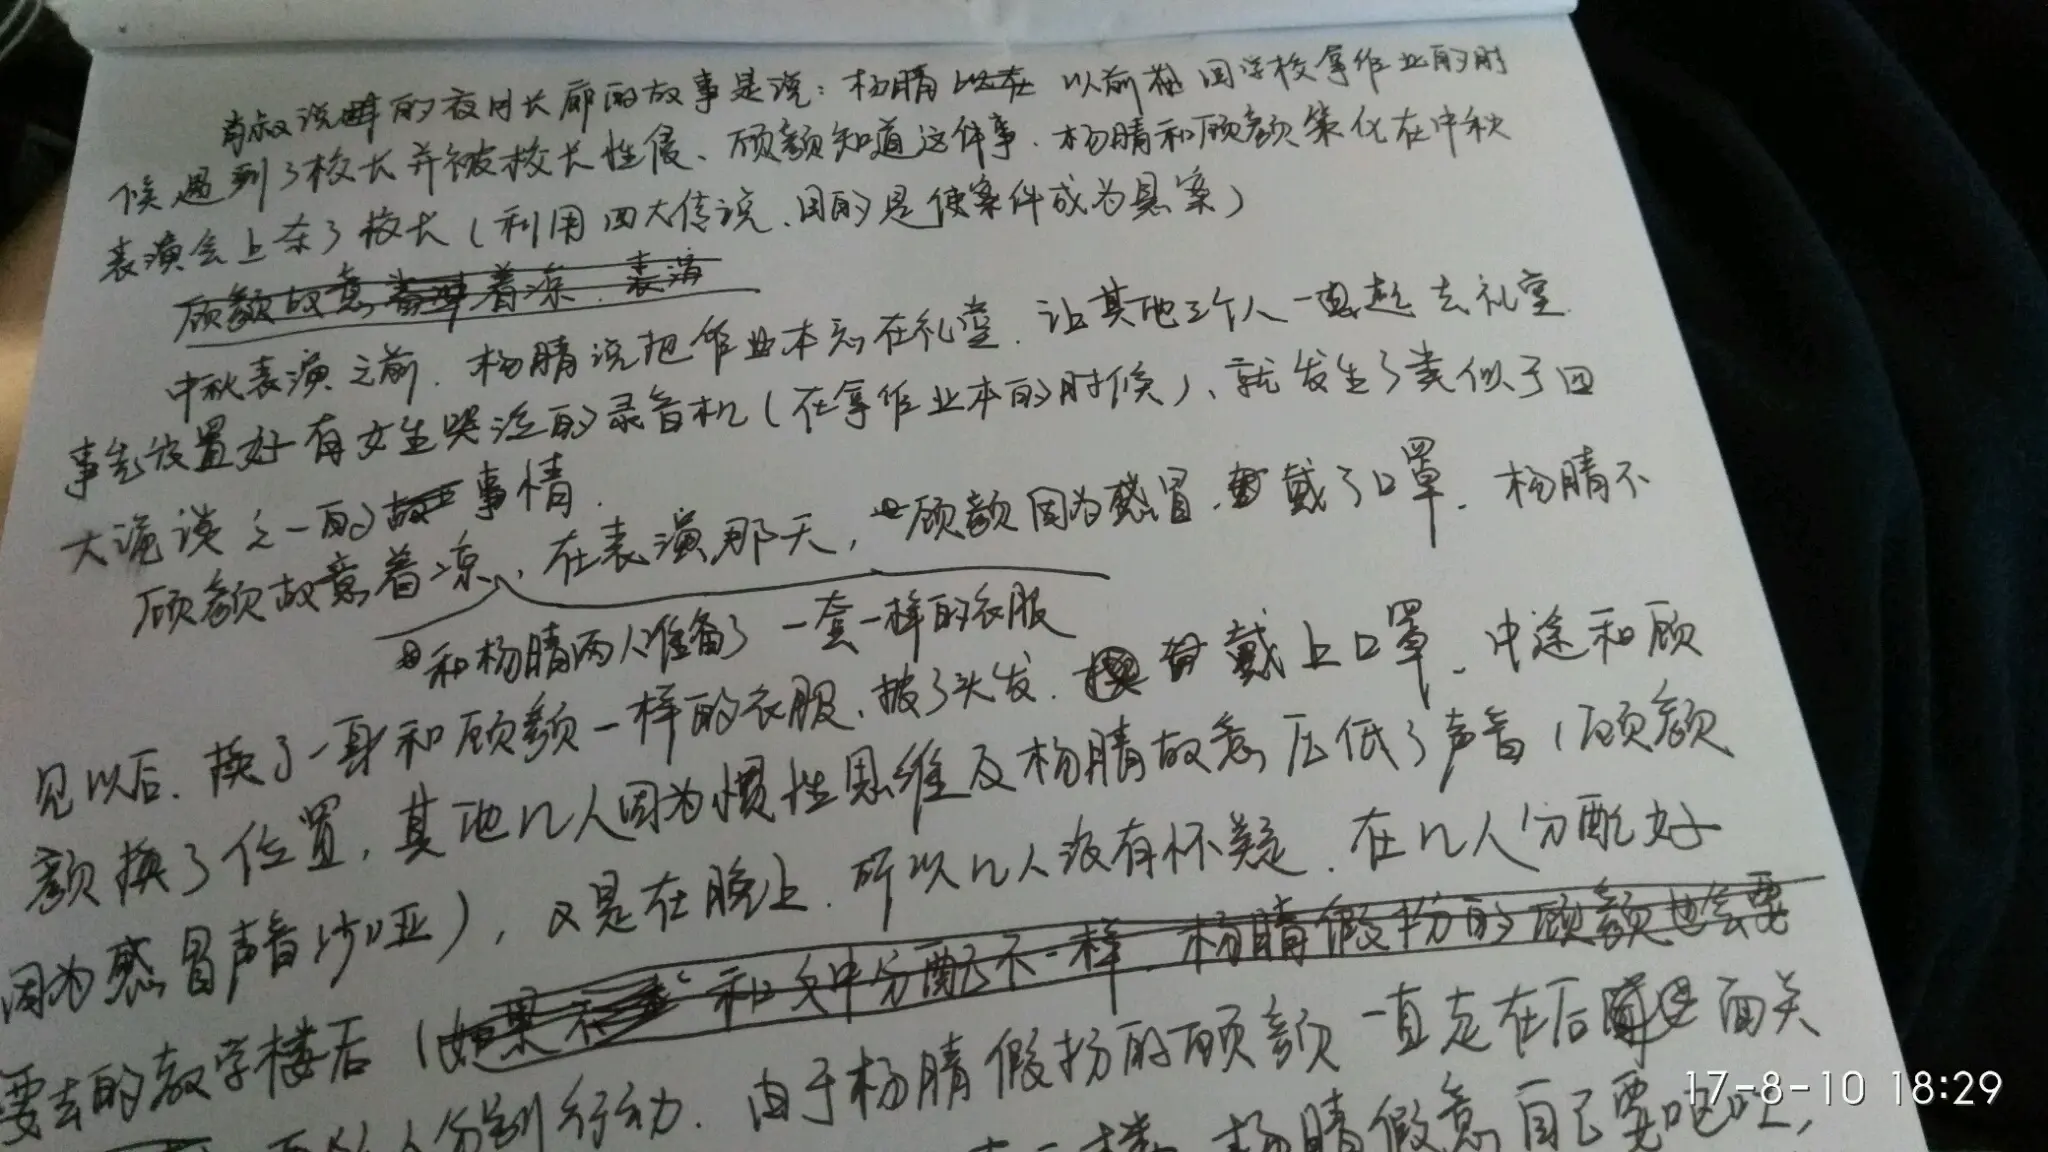 肖叔说的夜月长廊的故事是说：杨晴以前回学校拿作业的时
候遇到了校长并被校长性侵、顾颜知道这件事、杨晴和顾颜策化在中秋
表演会上杀了校长（利用四大传说、目的是使案件成为悬案）
顾颜故意着凉、表演
中秋表演之前、杨晴说把作业本忘在礼堂、让其他三个人一起去礼堂、
事先设置好有女生哭泣的录音机（在拿作业本的时候）、就发生了类似于四
大诡谈之一的事情．
顾颜故意着凉、在表演那天，顾颜因为感冒、戴了口罩．杨晴不
和杨晴两人准备了一套一样的衣服
见以后．换了一身和顾颜一样的衣服、披了头发、戴上口罩、中途和顾
颜换了位置，其他几人因为惯性思维及杨晴故意压低了声音（顾颜
因为感冒声音沙哑），又是在晚上．所以几人没有怀疑．在几人分配好
要去的教学楼后（如果 和文中分配不一样．杨晴假扮的顾颜也会要
人分别行动．由于杨晴假扮的顾颜一直走在后面关
楼 杨晴假意自己要呕吐，
17-8-10 18:29